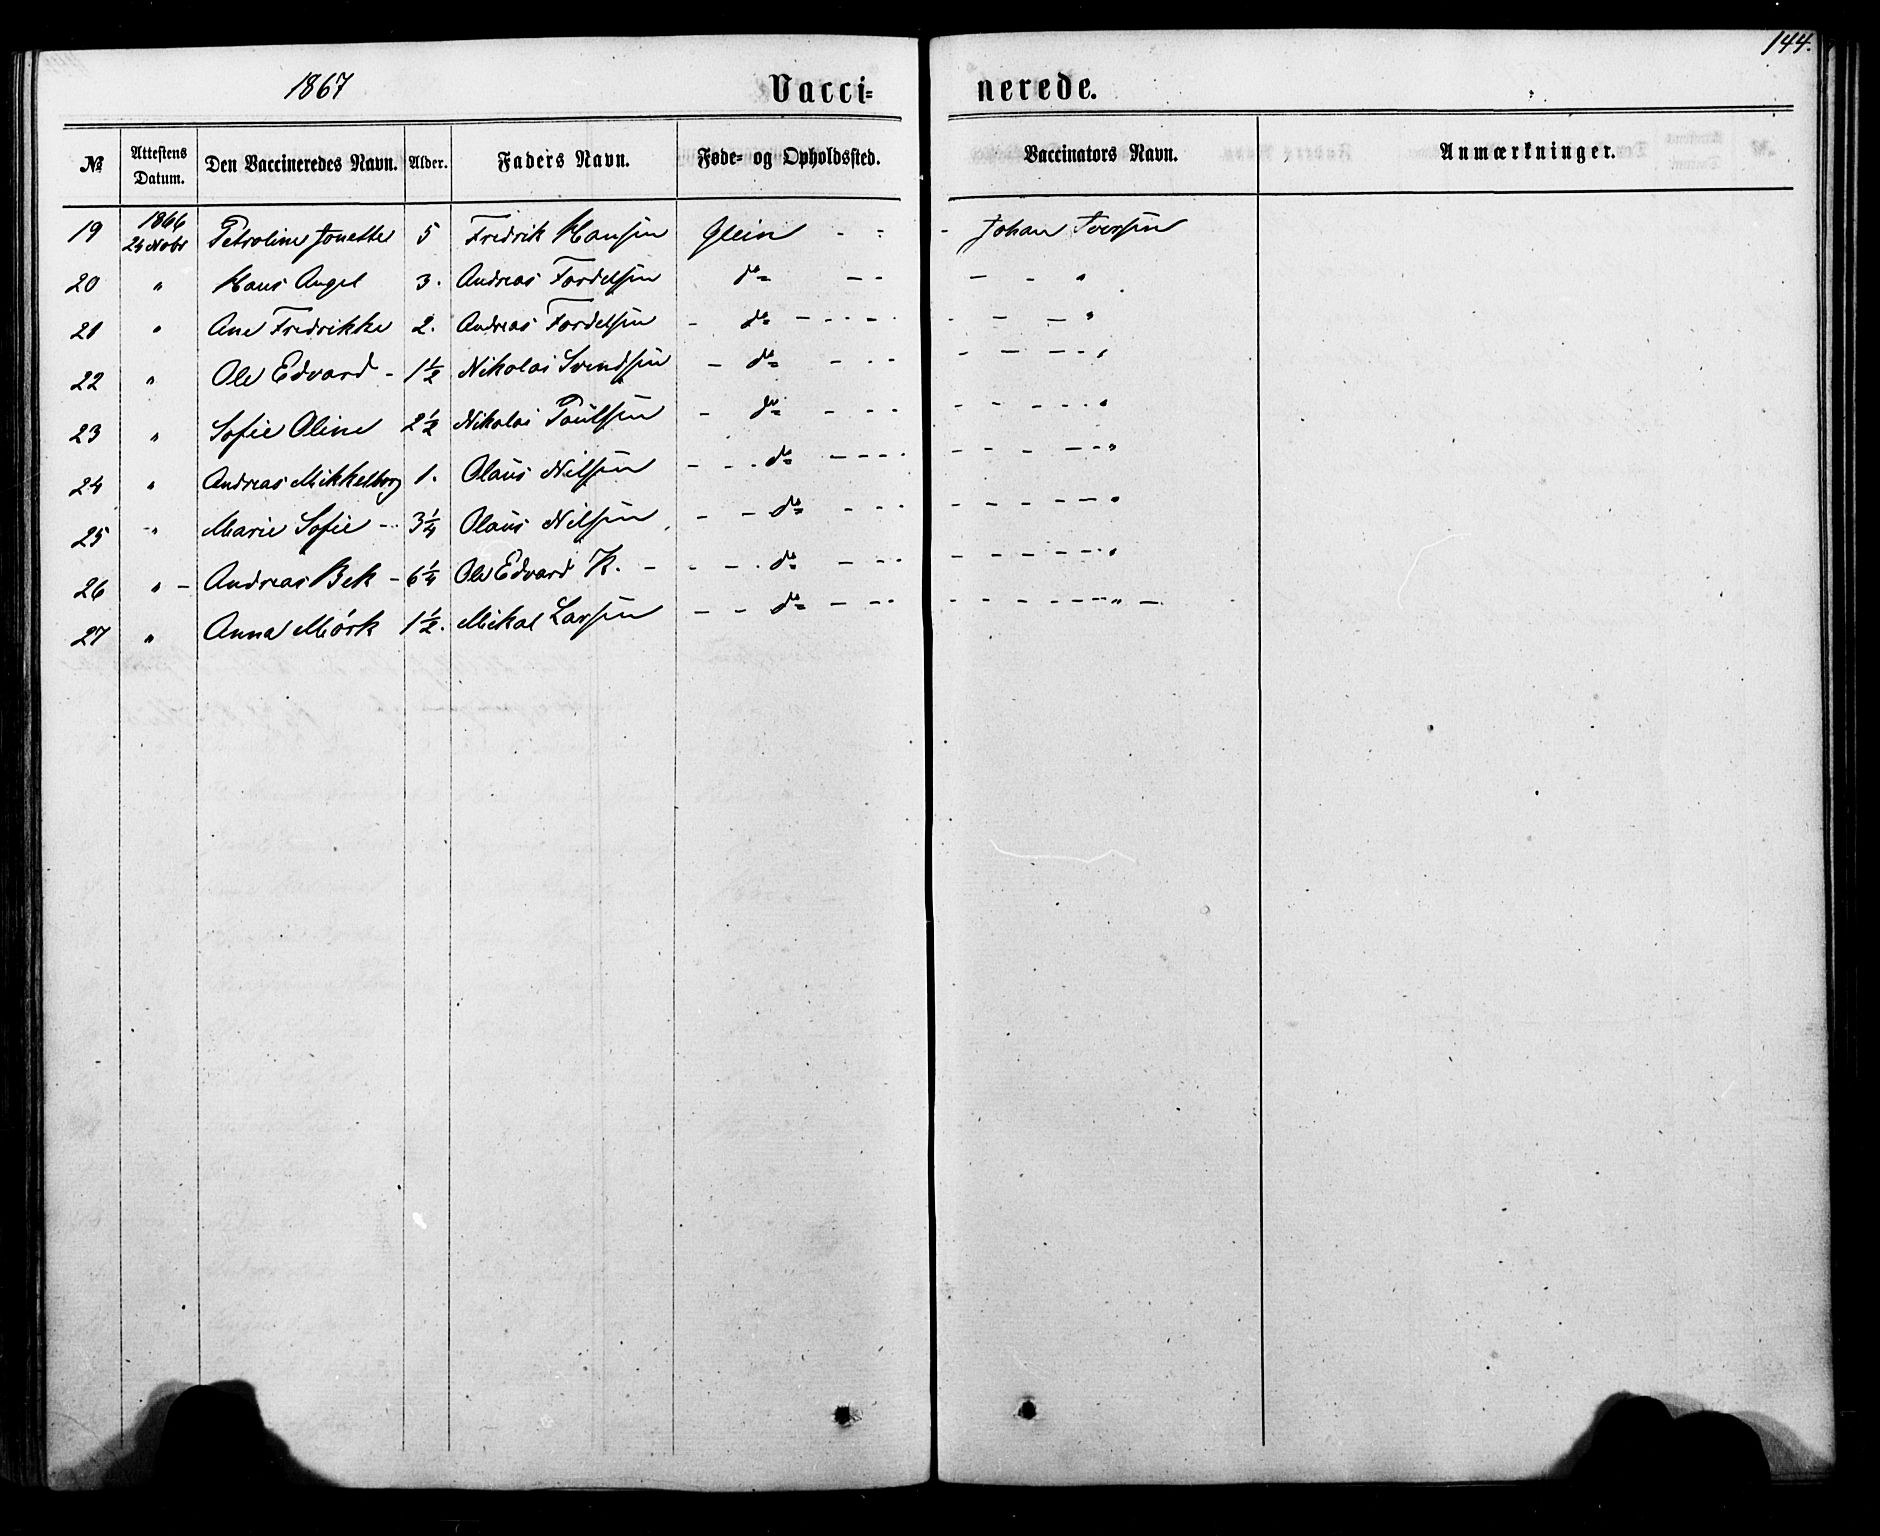 144.
1867 Vacci= nerede.
№ Attestens Datum. Den Vaccineredes Navn. Alder. Faders Navn. Føde= og Opholdssted. Vaccinators Navn. Anmærkninger.
19 1866 24 Novbr Petroline Jonette 5 Fredrik Hansen Glein - - - Johan Iversen
20 " Hans Angel 3. Andreas Tordelsen do - - - - "
21 " Ane Fredrikke 2. Andreas Tordelsen - do - - - - - - - "
22 " Ole Edvard - 1½ Nikolai Svendsen - do - - - - - - - "
23 " Sofie Oline 2½ Nikolai Paulsen - do - - - - - - - - "
24 " Andreas Mikkelborg 1. Olaus Nilsen - - - do - - - - - - - - - "
25 " Marie Sofie - 3¼ Olaus Nilsen - - do - - - - - - - - "
26 " - Andreas Bek - 6¼ Ole Edvard K. - - - - do - - - - - - - - - "
27 " Anna Mörk 1½. Mikal Larsen - - do - - - - - - - - - " -